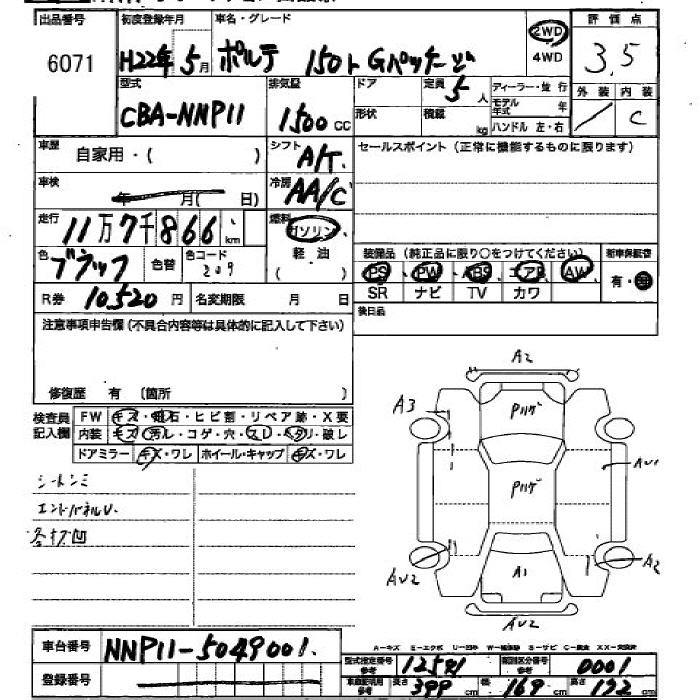 出品番号 初度登録年月 車名・グレード 評価点
6071 H22年5月 ポルテ 150r Gパッケージ 2WD 4WD 3.5
型式 排気量 ドア 定員 ディーラー・並行 外装 内装
CBA-NNP11 1500cc 5人 モデル年式 年 / C
形状 積載 kg ハンドル 左・右
車歴 自家用・( ) シフト A/T. セールスポイント(正常に機能するものに限ります)
車検 年 月( 日) 冷房 AA/C
走行 11万7千866km 燃料 ガソリン、
色 ブラック 色替 色コード 209 軽油 ( )
装備品(純正品に限り○をつけてください) 新車保証書
PS PW ABS エアB AW 有・無
SR ナビ TV カワ
R券 10,520円 名変期限 月 日 後日品
注意事項申告欄(不具合内容等は具体的に記入して下さい)
修復歴 有 〔箇所 〕
検査員記入欄 FW キズ・飛石・ヒビ割・リペア跡・X要
内装 キズ・汚レ・コゲ・穴・スレ・ヘタリ・破レ
ドアミラー キズ・ワレ ホイール・キャップ キズ・ワレ
シートシミ
エンドパネルU.
各打凹
A2
A3
Pハゲ
AU1
Pハゲ
AU2
A2
A1
AU2
A-キズ E-エクボ U-凹み W-補修跡 S-サビ C-腐食 XX-交換済
車台番号 NNP11-5049001.
型式指定番号 参考 12541 類別区分番号 参考 0001
登録番号
車庫証明用 参考 長さ 399cm 幅 169cm 高さ 172cm